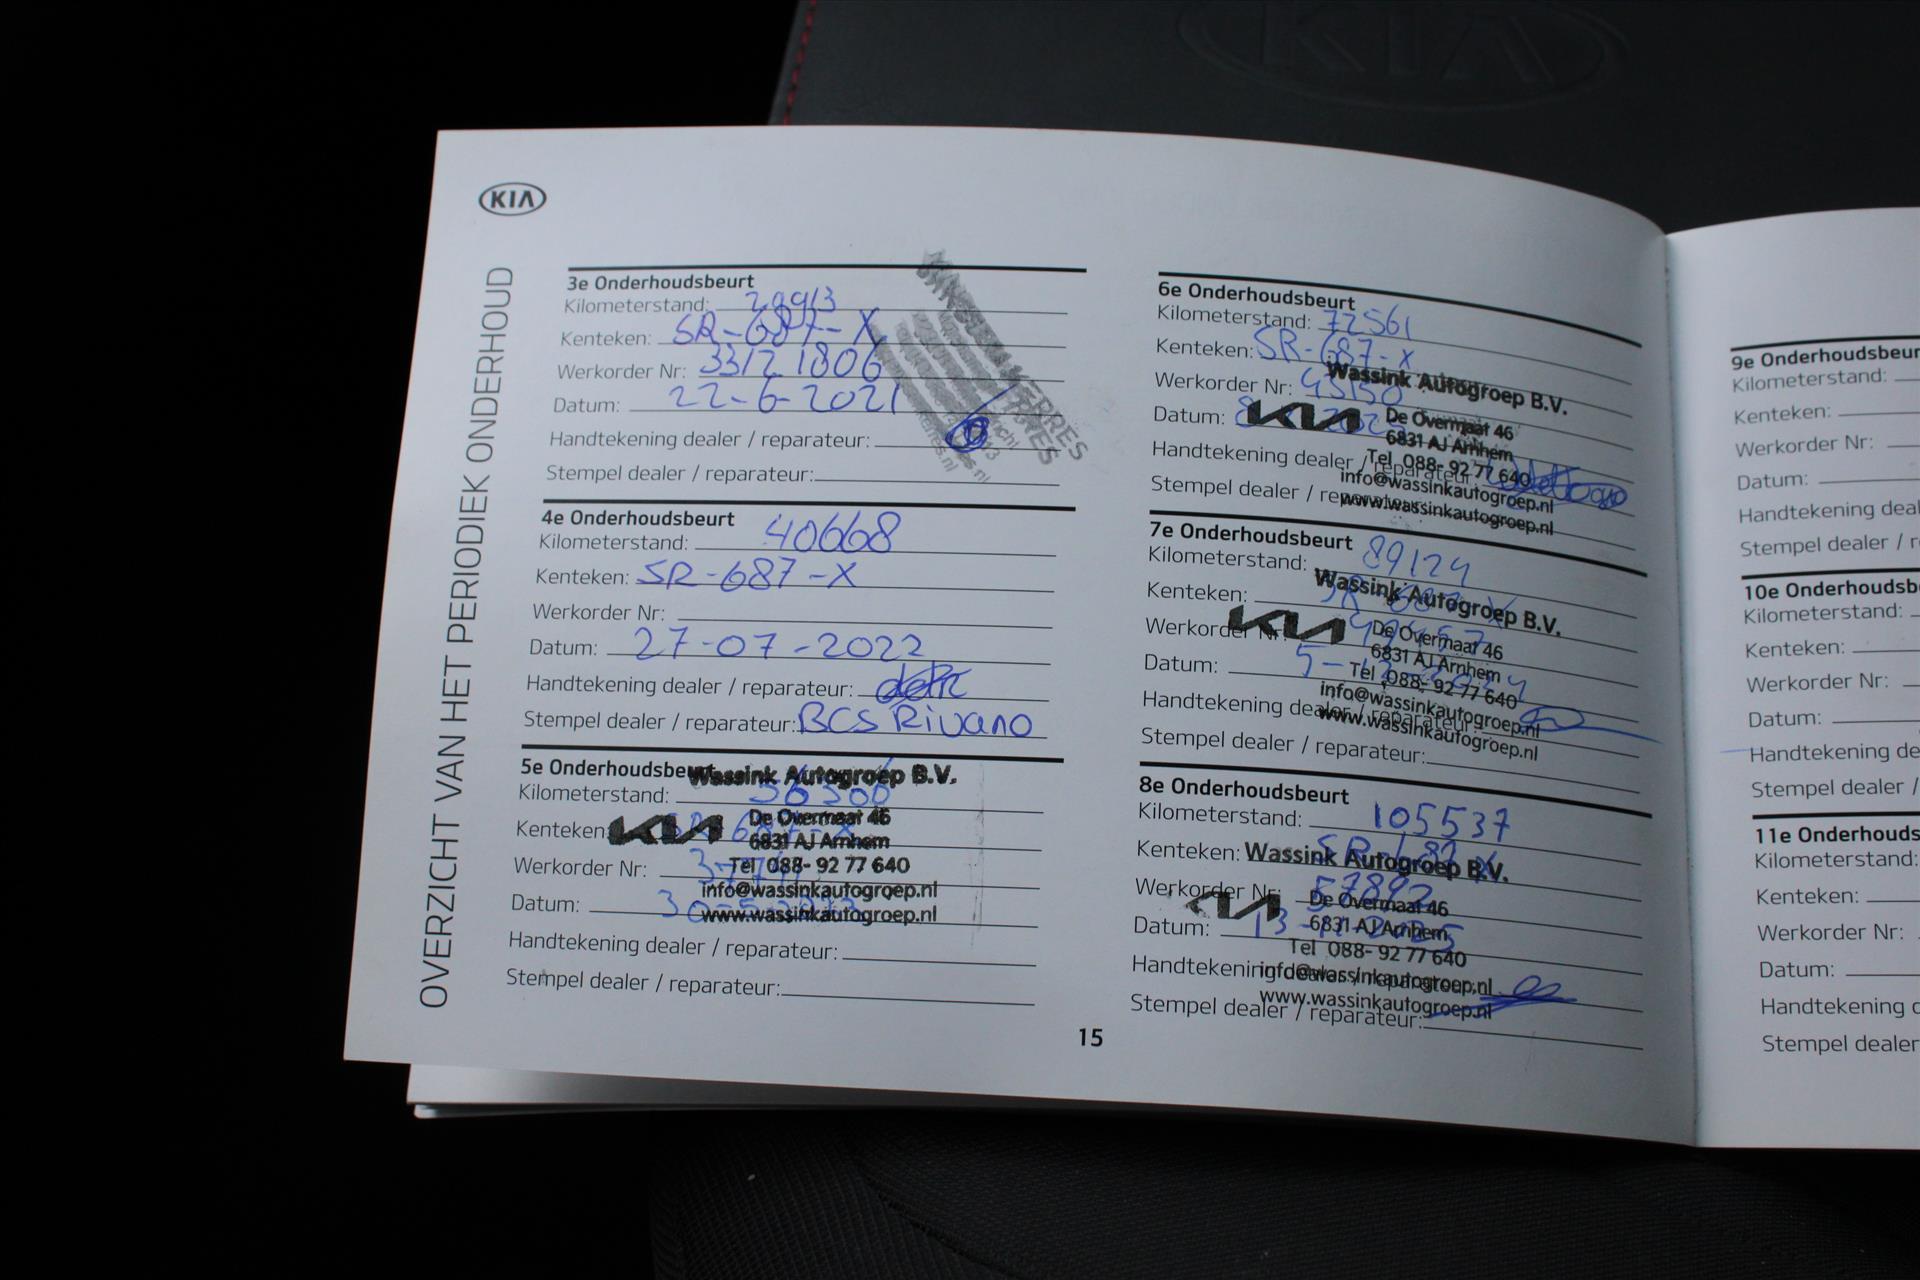 KIA
KIA
OVERZICHT VAN HET PERIODIEK ONDERHOUD
3e Onderhoudsbeurt
Kilometerstand: 29913
Kenteken: SR-687-X
Werkorder Nr: 33121806
Datum: 22-6-2021
Handtekening dealer / reparateur:
Stempel dealer / reparateur:
4e Onderhoudsbeurt
Kilometerstand: 40668
Kenteken: SR-687-X
Werkorder Nr:
Datum: 27-07-2022
Handtekening dealer / reparateur:
Stempel dealer / reparateur: BCS Rivano
5e Onderhoudsbeurt
Wassink Autogroep B.V.
Kilometerstand: 56306
De Overmaat 46
Kenteken: SR-687-X
KIA
6831 AJ Arnhem
Werkorder Nr:
Tel 088- 92 77 640
info@wassinkautogroep.nl
Datum: 30-5-2023
www.wassinkautogroep.nl
Handtekening dealer / reparateur:
Stempel dealer / reparateur:
6e Onderhoudsbeurt
Kilometerstand: 72561
Kenteken: SR-687-X
Wassink Autogroep B.V.
Werkorder Nr: 45150
KIA
De Overmaat 46
Datum: 8
6831 AJ Arnhem
Tel 088- 92 77 640
Handtekening dealer / reparateur:
info@wassinkautogroep.nl
Stempel dealer / reparateur:
www.wassinkautogroep.nl
7e Onderhoudsbeurt
Kilometerstand: 89124
Wassink Autogroep B.V.
Kenteken: SR-687-X
KIA
De Overmaat 46
Werkorder Nr:
6831 AJ Arnhem
Datum:
Tel 088- 92 77 640
info@wassinkautogroep.nl
Handtekening dealer / reparateur:
www.wassinkautogroep.nl
Stempel dealer / reparateur:
8e Onderhoudsbeurt
Kilometerstand: 105537
Kenteken: SR-687-X
Wassink Autogroep B.V.
Werkorder Nr: 57892
KIA
De Overmaat 46
Datum: 13-11-2025
6831 AJ Arnhem
Tel 088- 92 77 640
Handtekening dealer / reparateur:
info@wassinkautogroep.nl
www.wassinkautogroep.nl
Stempel dealer / reparateur:
15
9e Onderhoudsbeur
Kilometerstand:
Kenteken:
Werkorder Nr:
Datum:
Handtekening deal
Stempel dealer / r
10e Onderhoudsb
Kilometerstand:
Kenteken:
Werkorder Nr:
Datum:
Handtekening de
Stempel dealer /
11e Onderhouds
Kilometerstand:
Kenteken:
Werkorder Nr:
Datum:
Handtekening
Stempel dealer